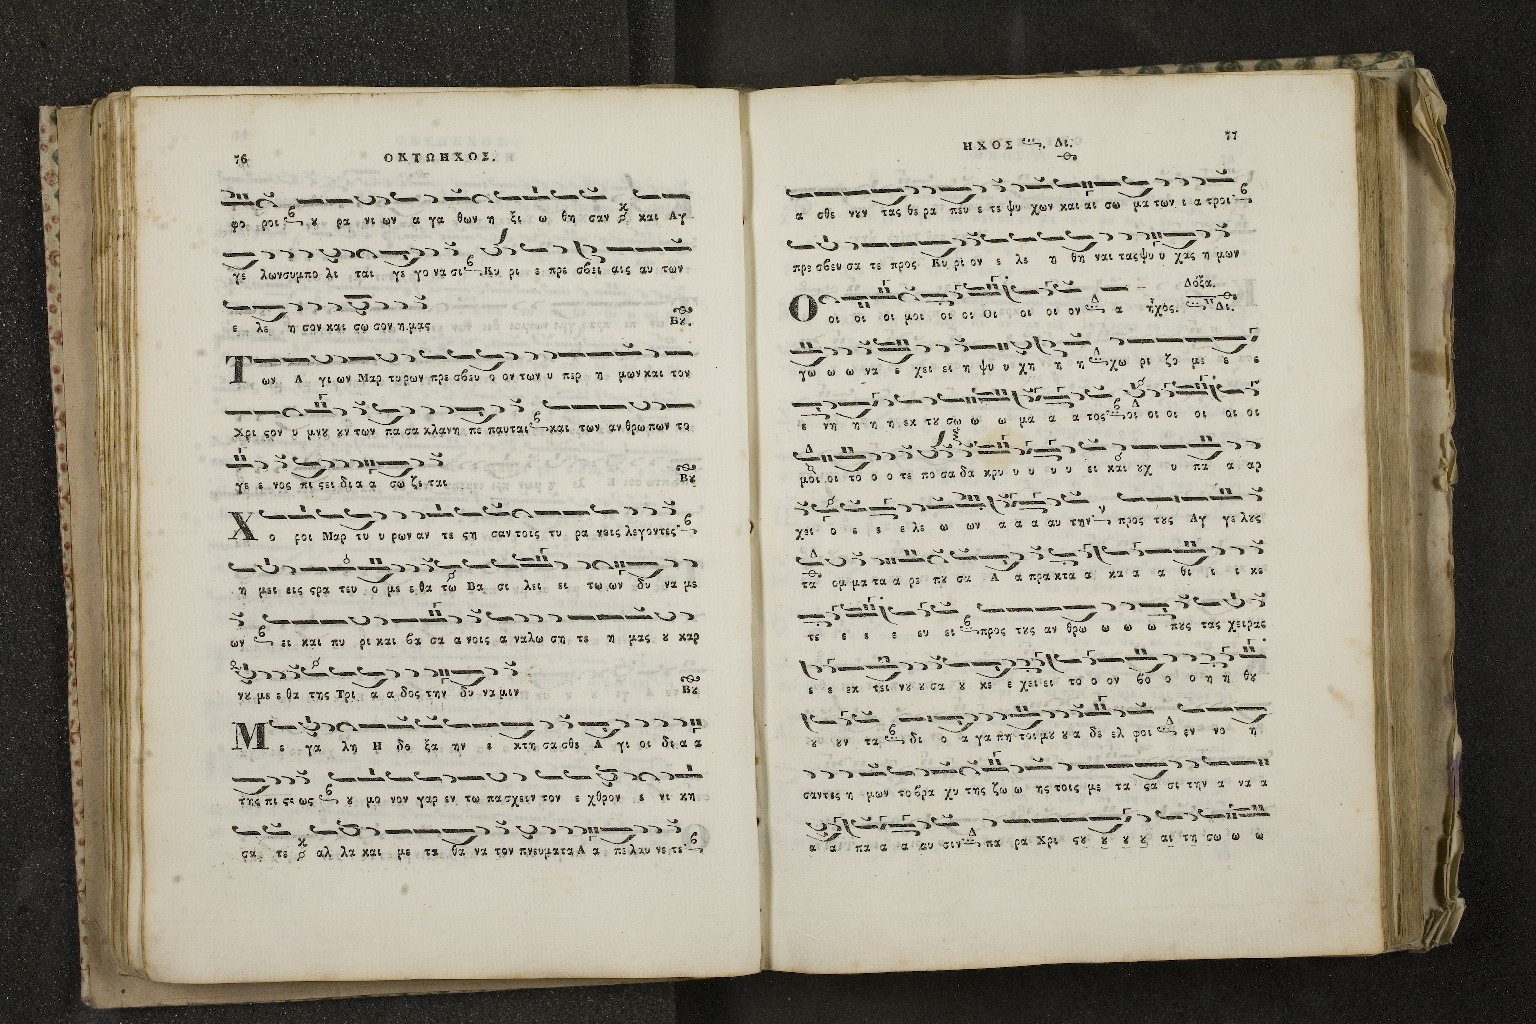 76
ΟΚΤΩΗΧΟΣ.
φο ροι ȣ ρα νι ων α γα θων η ξι ω θη σαν και Αγ
γε λωνσυμπο λι ται γε γο να σι Κυ ρι ε πρε σϐει αις αυ των
ε λε η σον και σω σον η.μας Βȣ.
Των Α γι ων Μαρ τυρων πρε σϐευ ο ον των υ περ η μων και τον
Χρι ϛον υ μνȣ ȣν των πα σα κλανη πε παυται και των αν θρω πων το
γε ε νος πι ϛει δι α α σω ζε ται Βȣ
Χο ροι Μαρ τυ υ ρων αν τε ϛη σαν τοις τυ ρα ννεις λεγοντες
η μει εις ϛρα τευ ο με ε θα τω Βα σι λει ει τω ων δυ να με
ων ει και πυ ρι και ϐα σα α νοις α ναλω ση τε η μας ȣ καρ
νȣ με ε θα της Τρι α α δος την δυ ναμιν Βȣ
Με γα λη Η δο ξα ην ε κτη σα σθε Α γι οι δι α α
της πι ϛε ως ȣ μο νον γαρ εν τω πα σχειν τον ε χθρον ε νι κη
σα τε αλ λα και με τα θα να τον πνευματα Α α πε λαυ νε τε
77
ΗΧΟΣ Δι.
α σθε νȣν τας θε ρα πευ ε τε ψυ χων και αι σω μα των ι α τροι
πρε σϐευ σα τε προς Κυ ρι ον ε λε η θη ναι τας ψυ υ χας η μων
Δόξα.
Οοι οι οι μοι οι οι Οι οι οι ον α ἦχος. Δι.
γω ω ω να ε χει ει η ψυ υ χη η η χω ρι ζο με ε ε
ε νη η η η εκ τȣ σω ω ω μα α α τος οι οι οι οι οι οι
μοι οι το ο ο τε πο σα δα κρυ υ υ υ υ ει και ȣχ υ πα α αρ
χει ο ε ε ε ελε ω ων α α α αυ την προς τȣς Αγ γε λȣς
τα ομ μα τα α ρε πȣ σα Α α πρα κτα α κα α α θι ι ι κε
τε ε ε ε ευ ει προς τȣς αν θρω ω ω ω πȣς τας χειρας
ε ε εκ τει νȣ ȣ σα ȣ κε ε χει ει το ο ον ϐο ο ο η η θȣ
ȣ ȣν τα δι ο α γα πη τοι μȣ ȣ α δε ελ φοι εν νο η
σαν τες η μων το ϐρα χυ της ζω ω ης τοις με τα ϛα σι την α να α
α α πα α α αυ σιν πα ρα Χρι ϛȣ ȣ ȣ ȣ αι τη σω ω ω